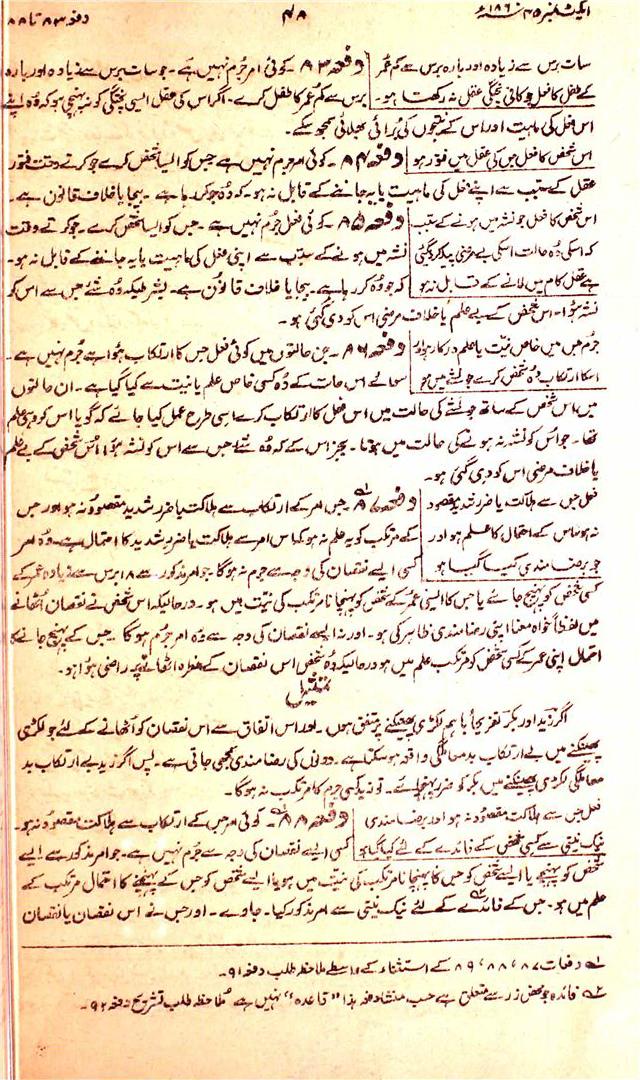 ایکٹ نمبر ۴۵ ۱۸۶۰ء ۴۸ دفعہ ۸۳ تا ۸۸
سات برس سے زیادہ اور بارہ برس سے کم عمر
کے طفل کا فعل جو کافی پختگی عقل نہ رکھتا ہو۔
دفعہ ۸۳۔ کوئی امر جرم نہیں ہے۔ جو سات برس سے زیادہ اور بارہ
برس سے کم عمر کا طفل کرے۔ اگر اس کی عقل ایسی پختگی کو نہ پہنچی ہو کہ وہ اپنے
اس فعل کی ماہیت اور اس کے نتیجوں کی بُرائی بھلائی سمجھ سکے۔
اس شخص کا فعل جس کی عقل میں فتور ہو
دفعہ ۸۴۔ کوئی امر جرم نہیں ہے جس کو ایسا شخص کرے جو کرتے وقت فتور
عقل کے سبب سے اپنے فعل کی ماہیت یا یہ جاننے کے قابل نہ ہو۔ کہ وہ جو کر رہا ہے۔ بیجا یا خلاف قانون ہے۔
اس شخص کا فعل جو نشہ میں ہونے کے سبب
کہ اسکی وہ حالت اسکی بے مرضی پیدا کی گئی
ہے عقل کام میں لانے کے قابل نہ ہو
دفعہ ۸۵۔ کوئی فعل جرم نہیں ہے۔ جس کو ایسا شخص کرے۔ جو کرتے وقت
نشہ میں ہونے کے سبب سے اپنی فعل کی ماہیت یا یہ جاننے کے قابل نہ ہو۔
کہ جو وہ کر رہا ہے۔ بیجا یا خلاف قانون ہے۔ بشرطیکہ وہ شئے جس سے اس کو
نشہ ہوا۔ اس شخص کے بے علم یا خلاف مرضی اس کو دی گئی ہو۔
جرم جس میں خاص نیت یا علم درکار ہو اور
اسکا ارتکاب وہ شخص کرے جو نشے میں ہو
دفعہ ۸۶۔ جن حالتوں میں کوئی فعل جس کا ارتکاب ہوا ہے جرم نہیں ہے۔
سوائے اس حالت کے کہ وہ کسی خاص علم یا نیت سے کیا گیا ہے۔ ان حالتوں
میں اس شخص کے ساتھ جو نشے کی حالت میں اس فعل کا ارتکاب کرے اسی طرح عمل کیا جائے گا کہ گویا اس کو وہی علم
تھا۔ جو اس کو نشہ نہ ہونے کی حالت میں ہوتا۔ بجز اس کے کہ وہ شئے جس سے اس کو نشہ ہوا اس شخص کے بے علم
یا خلاف مرضی اس کو دی گئی ہو۔
فعل جس سے ہلاکت یا ضرر شدید مقصود
نہ ہو نہ اس کے احتمال کا علم ہو اور
جو برضا مندی کیا گیا ہو
دفعہ ۸۷۔ جس امر کے ارتکاب سے ہلاکت یا ضرر شدید مقصود نہ ہو اور جس
کے مرتکب کو یہ علم نہ ہو کہ اس امر سے ہلاکت یا ضرر شدید کا احتمال ہے۔ وہ امر
کسی ایسے نقصان کی وجہ سے جرم نہ ہوگا۔ جو امر مذکور سے ۱۸ برس سے زیادہ عمر کے
کسی شخص کو پہنچ جائے یا جس کا ایسی عمر کے شخص کو پہنچانا مرتکب کی نیت میں ہو۔ درحالیکہ اس شخص نے نقصان اٹھانے
میں لفظاً خواہ معناً اپنی رضا مندی ظاہر کی ہو۔ اور نہ ایسے نقصان کی وجہ سے وہ امر جرم ہوگا۔ جس کے پہنچ جانے کا
احتمال اپنی عمر کے کسی شخص کو مرتکب علم میں ہو درحالیکہ وہ شخص اس نقصان کے خطرہ اٹھانے پر راضی ہوا ہو۔
تمثیل
اگر زید اور بکر تفریحاً باہم لکڑی پھینکنے پر متفق ہوں۔ اور اس اتفاق سے اس نقصان کو اٹھانے کے لئے جو لکڑی
پھینکنے میں بے ارتکاب بدمعاملگی واقع ہو سکتا ہے۔ دونوں کی رضا مندی سمجھی جاتی ہے۔ پس اگر زید بے ارتکاب بد
معاملگی لکڑی پھینکنے میں بکر کو ضرر پہنچائے۔ تو زید کسی جرم کا مرتکب نہ ہوگا۔
فعل جس سے ہلاکت مقصود نہ ہو اور برضا مندی
نیک نیتی سے کسی شخص کے فائدے کے لئے کیا گیا ہو
دفعہ ۸۸۔ کوئی امر جس کے ارتکاب سے ہلاکت مقصود نہ ہو۔
کسی ایسے نقصان کی وجہ سے جرم نہیں ہے۔ جو امر مذکور سے ایسے
شخص کو پہنچے یا ایسے شخص کو جس کا پہنچانا مرتکب کی نیت میں ہو یا ایسے شخص کو جس کے پہنچنے کا احتمال مرتکب کے
علم میں ہو۔ جس کے فائدے کے لئے نیک نیتی سے امر مذکور کیا۔ جاوے۔ اور جس نے اس نقصان یا نقصان
۱؎ دفعات ۸۷، ۸۸، ۸۹ کے استثناء کے واسطے ملاحظہ طلب دفعہ ۹۱۔
۲؎ فائدہ جو محض زر سے متعلق ہے حسب منشاء دفعہ ہذا "فائدہ" نہیں ہے ملاحظہ طلب تشریح دفعہ ۹۲۔